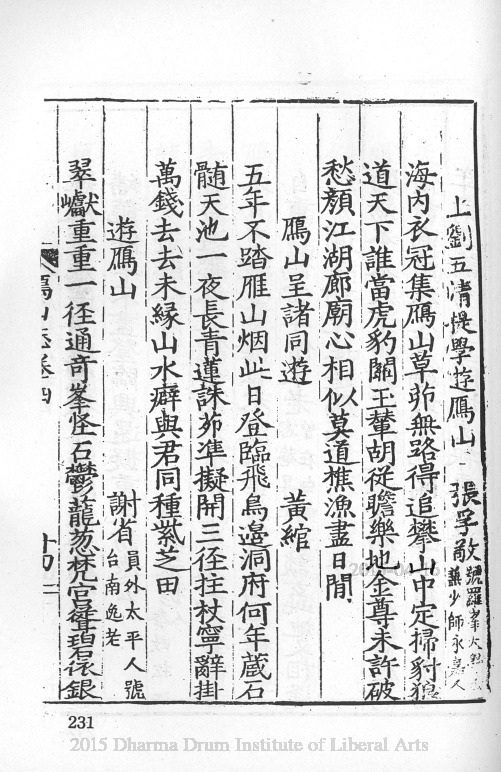 上劉五清提學遊鴈山 張孚敬 號羅峯大
兼少師永嘉人
海內衣冠集鴈山草茆無路得追攀山中定掃豺狼
道天下誰當虎豹關玉輦胡從瞻樂地金尊未許破
愁顏江湖廊廟心相似莫道樵漁盡日閒
鴈山呈諸同遊 黃綰
五年不踏雁山烟此日登臨飛鳥邊洞府何年蔵石
髄天池一夜長青蓮誅茆準擬開三径拄杖寧辭掛
萬錢去去未縁山水癖與君同種紫芝田
遊鴈山 謝省 員外太平人號
台南逸老
翠巘重重一径通奇峯怪石鬱龍葱梵宮聳碧依銀
鴈山志卷四
231
2015 Dharma Drum Institute of Liberal Arts